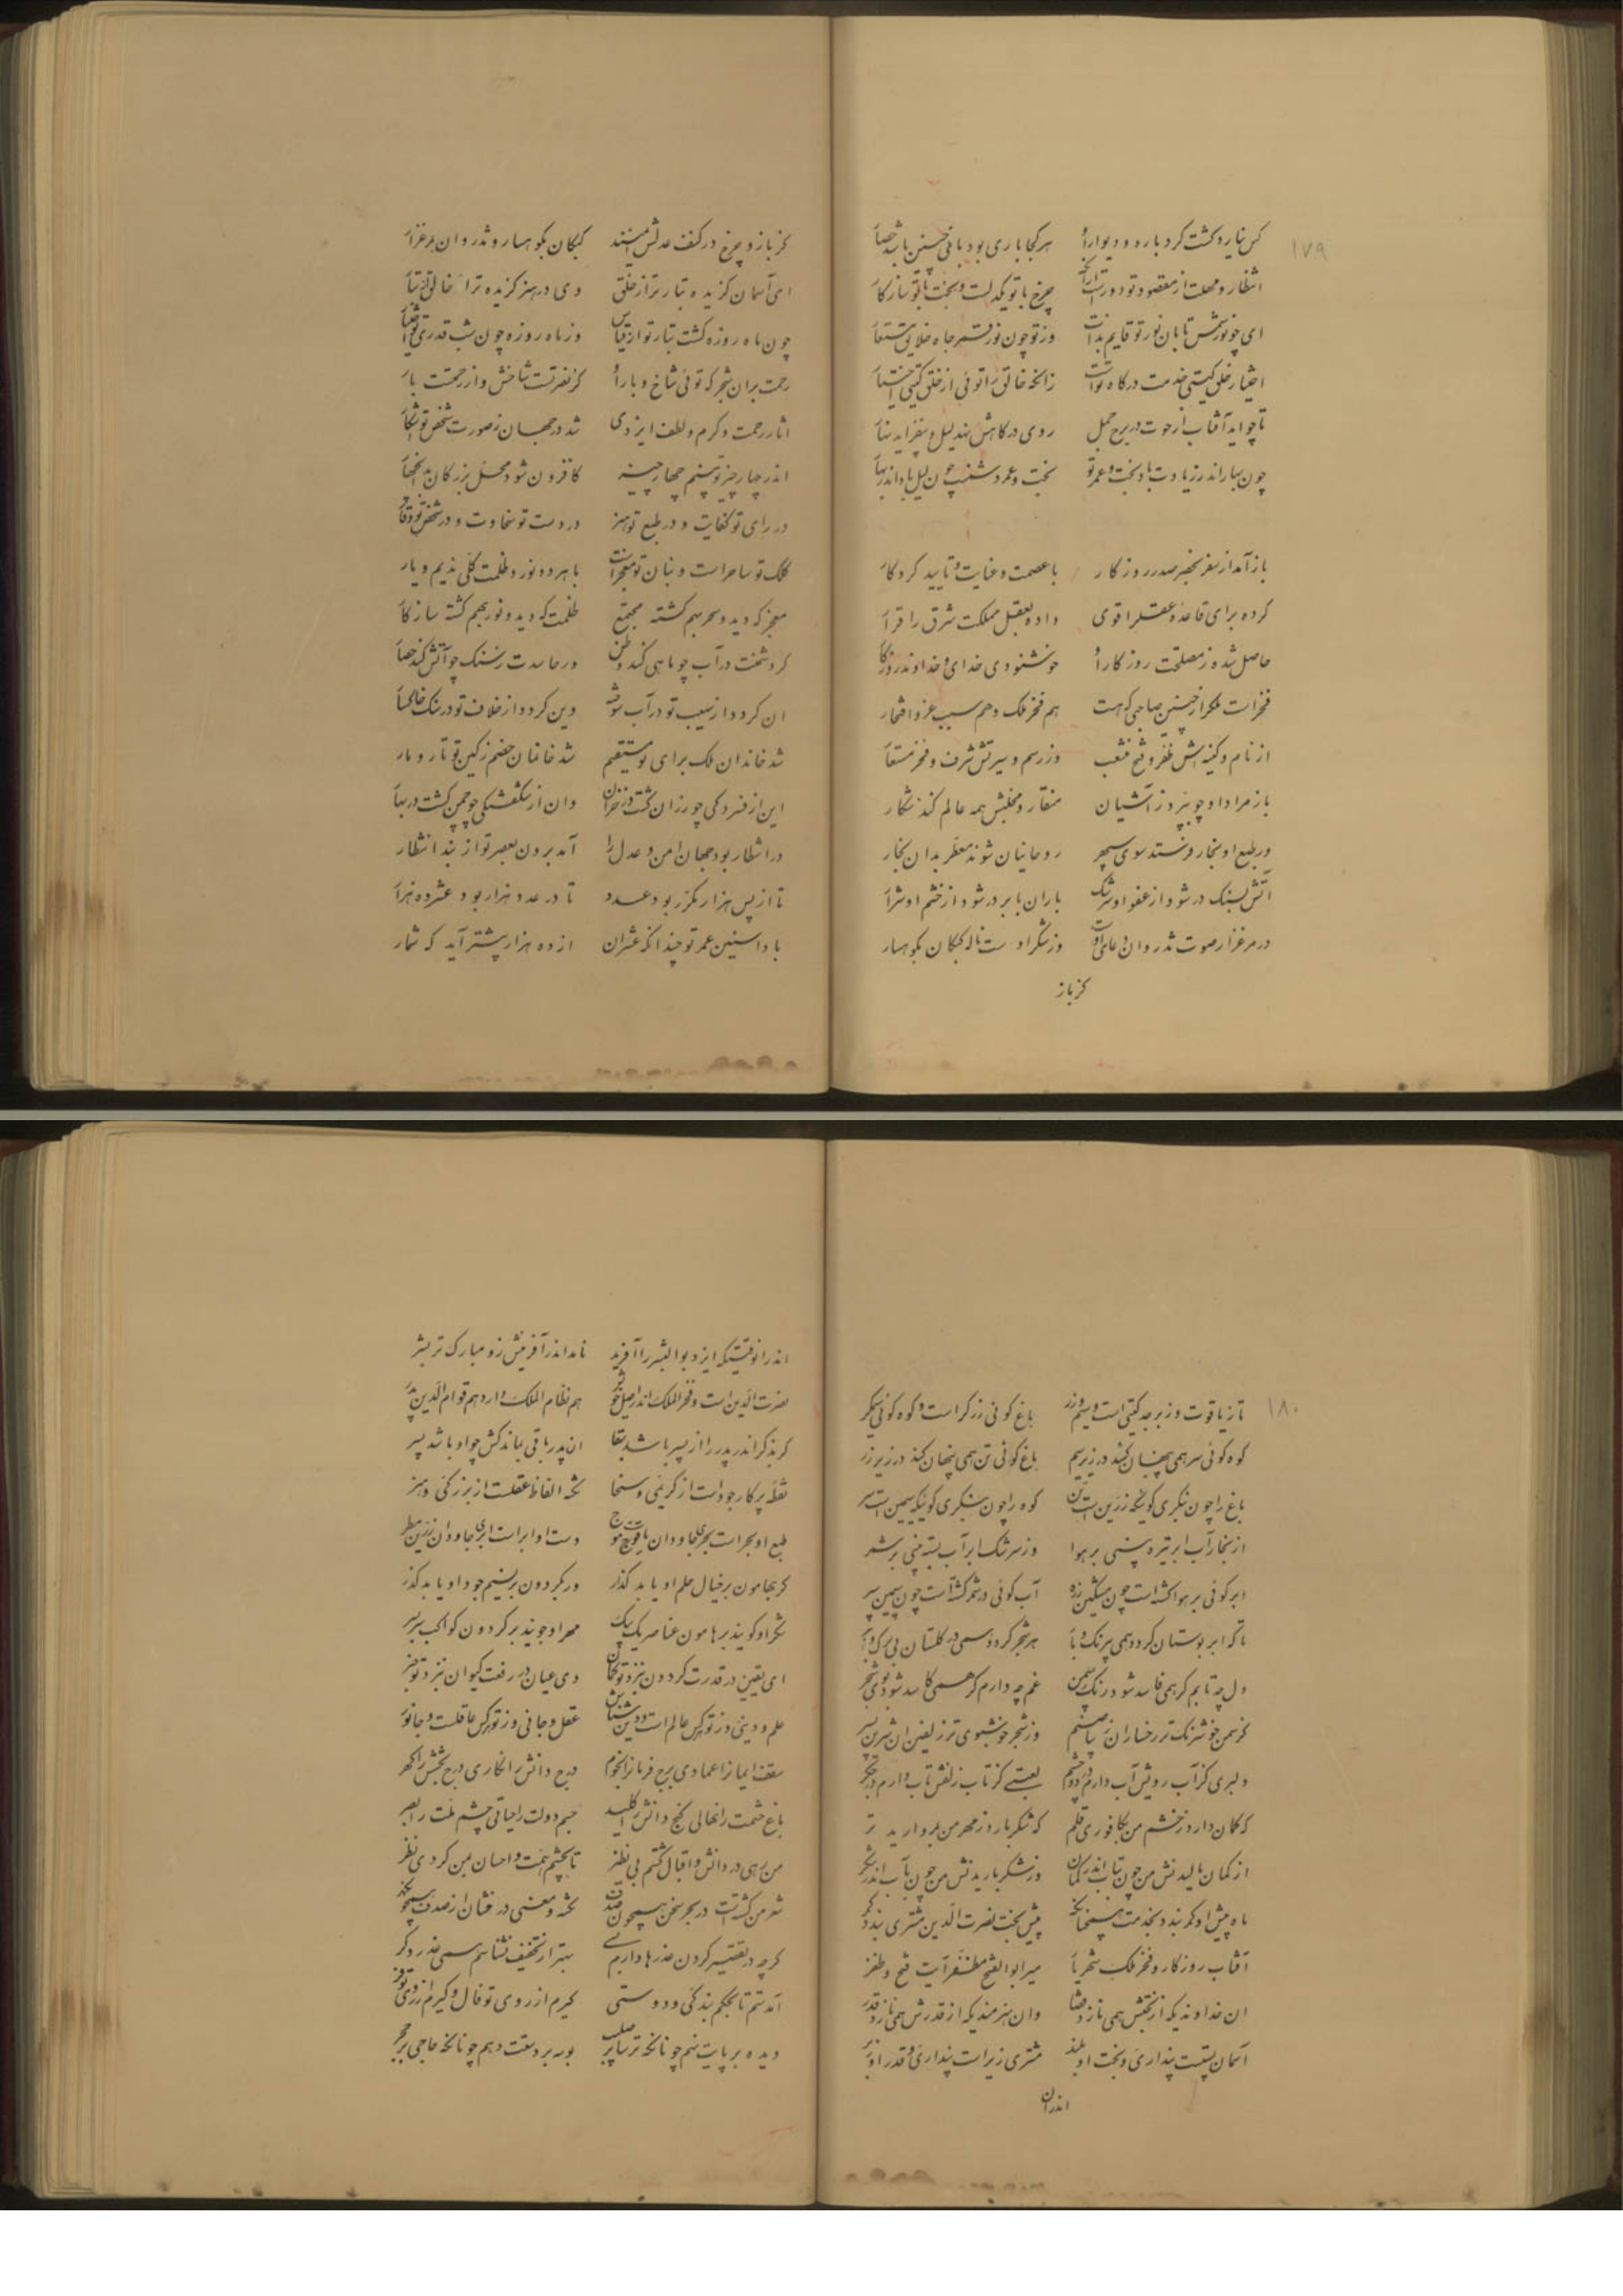 ۱۷۹
کس نیارد گشت گرد باره و دیوار او هر کجا باری بود باقی چنین باشد حصار
چرخ با تو یکدلست و بخت با تو سازکار
ای چو نور شمس تابان نور تو قایم بذات وز تو چون نور قمر جاه خلایق مستعار
اختیار خلق گیتی خدمت درگاه تواست زانکه خالق را توئی از خلق گیتی اختیار
تا چو آید آفتاب از حوت در برج حمل روی در کاهش نهد لیل و بیفزاید نهار
چون بهار اندر زیادت باد بخت و عمر تو بخت و عمر دشمنت چون لیل باد اندر بهار
باز آمد از سفر بحضر صدر روزکار با عصمت و عنایت و تایید کردکار
کرده برای قاعده عقل را قوی داده بعقل مملکت شرق را قرار
حاصل شده ز مصلحت روزکار او خوشنودی خدای و خداوند روزکار
فخر است ملک را ز چنین صاحبی که هست هم فخر ملک و هم سبب عز و افتخار
از نام و کنیه اش ظفر و فتح منشعب وز رسم و سیرتش شرف و فخر مستعار
باز مراد او چو بپرد ز آشیان منقار و مخلبش همه عالم کند شکار
ور طبع او بخار فرستد سوی سپهر روحانیان شوند معطر بدان بخار
آتش بسنک در شود از عفو او سرشک باران بابر در شود از خشم او شرار
در مرغزار صوت تذروان دعای اوست وز شکر اوست ناله کبکان بکوهسار
کز باز
کز باز و چرخ در کنف عدلش ایمنند کبکان بکوهسار و تذروان بمرغزار
ای آسمان گزیده تبار تو از خلق وی در هنر گزیده ترا خالق از تبار
چون ماه روزه گشت تبار تو از قیاس وز ماه روزه چون شب قدری تو اختیار
رحمت بران شجر که توئی شاخ و بار او کز نصرتست شاخش و از رحمتست بار
اثار رحمت و کرم و لطف ایزدی شد در جهان ز صورت شخص تو آشکار
اندر چهار چیز تو بینم چهار چیز کافزون شود محل بزرکان بدین چهار
در رای تو کفایت و در طبع تو هنر در دست تو سخاوت و در شخص تو وقار
کلک تو ساحر است و بنان تو معجز است با هر دو نور و ظلمت کلی ندیم و یار
معجز که دید و سحر بهم کشته مجتمع ظلمت که دید و نور بهم کشته سازکار
گر دشمنت در آب چو ماهی کند وطن ور حاسدت ز سنک چو آتش کند حصار
ان گردد از نهیب تو در آب سوخته وین گردد از خلاف تو در سنک خاکسار
شد خاندان ملک برای تو مستقیم شد خانمان خصم ز کین تو تار و مار
این از فسردگی چو رزان گشت در خزان وان از شکفتگی چو چمن گشت در بهار
در انتظار بود جهان امن و عدل را آمد برون بعصر تو از بند انتظار
تا از پس هزار مکرر بود عدد تا در عدد هزار بود عشر ده هزار
بادا سنین عمر تو چندانکه عشر ان از ده هزار بیشتر آید که شمار
۱۸۰
تا ز یاقوت و زبرجد گیتی است و سیم و زر باغ گوئی زرگر است و کوه گوئی سیمگر
کوه گوئی سر همی پنهان کند در زیر سیم باغ گوئی تن همی پنهان کند در زیر زر
باغ را چون بنگری گوئیکه زرین است تن کوه را چون بنگری گوئیکه سیمین است سر
از بخار آب ابر تیره بینی بر هوا وز سرشک ابر آب بسته بینی بر شمر
ابر گوئی بر هوا گشته است چون مشکین زره آب گوئی در شمر گشته است چون سیمین سپر
تا که ابر بوستان گردد همی بیرنک و بار هر شجر گردد همی در گلستان بی برک و بر
دل چه تابم گر همی فاسد شود رنک سمن غم چه دارم گر همی کاسد شود بوی شجر
کز سمن خوشرنک تر رخساران زیبا صنم وز شجر خوشبوی تر زلفین ان شیرین پسر
دلبری کز آب رویش آب دارم در دو چشم لعبتی کز تاب زلفش تاب دارم در جگر
که کمان دارد ز خشم من بکافوری قلم که شکر بارد ز مهر من بمروارید تر
از کمان بالیدنش من چون بتاب اندر کمان وز شکر باریدنش من چون بآب اندر شکر
ماه پیش او کمر بندد بخدمت همچنانکه پیش بخت نصرت الدین مشتری بندد کمر
آفتاب روزکار و فخر ملک شهریار میر ابو الفتح مظفر آیت فتح و ظفر
ان خداوندیکه از بختش همی نازد قضا وان هنرمندیکه از قدرش همی نازد قدر
آسمان پستست پنداری و بخت او بلند مشتری زیر است پنداری و قدر او زبر
اندران
اندرانوقتیکه ایزد بوالبشر را آفرید نامد اندر آفرینش زو مبارک تر بشر
نصرت الدین است و فخر الملک اندر اصل خویش هم نظام الملک دارد هم قوام الدین پدر
گر بذکر اندر پدر را از پسر باشد بقا ان پدر باقی بماند کش چو او باشد پسر
نقطه پرکار جود است از کریمی و سخا نکته الفاظ عقلست از بزرکی و هنر
طبع او بحر است بحری جاودان یاقوت موج دست او ابر است ابری جاودان زرین مطر
گر بهامون بر خیال حلم او یابد گذر ور بگردون بر نسیم جود او یابد گذر
شکر او گویند بر هامون عناصر یک بیک مهر او جویند بر گردون کواکب سر بسر
ای یقین در قدرت گردون بنزد تو گمان وی عیان در رفعت کیوان بنزد تو خبر
علم و دینی وز تو هر کس عالم است و دین شناس عقل و جانی وز تو هر کس عاقلست و جانور
سقف ایمانرا عمادی برج فرمانرا نجوم درج دانش را نکاری درج بخشش را گهر
باغ حشمت را نهالی گنج دانش را کلید جسم دولت را حیاتی چشم ملت را بصر
من رهی در دانش و اقبال گشتم بی نظیر تا بچشم همت و احسان بمن کردی نظر
شعر من گشتست در بحر سخن همچون صدف نکته و معنی در فشان از صدف همچون گهر
گرچه در تقصیر کردن عذرها دارم بسی بهتر از تخفیف نشناسم همی عذر دگر
آمدستم تا بحکم بندگی و دوستی گیرم از روی تو فال و گیرم از روی تو فر
دیده بر پایت نهم چونانکه ترسا بر صلیب بوسه بر دستت دهم چونانکه حاجی بر حجر